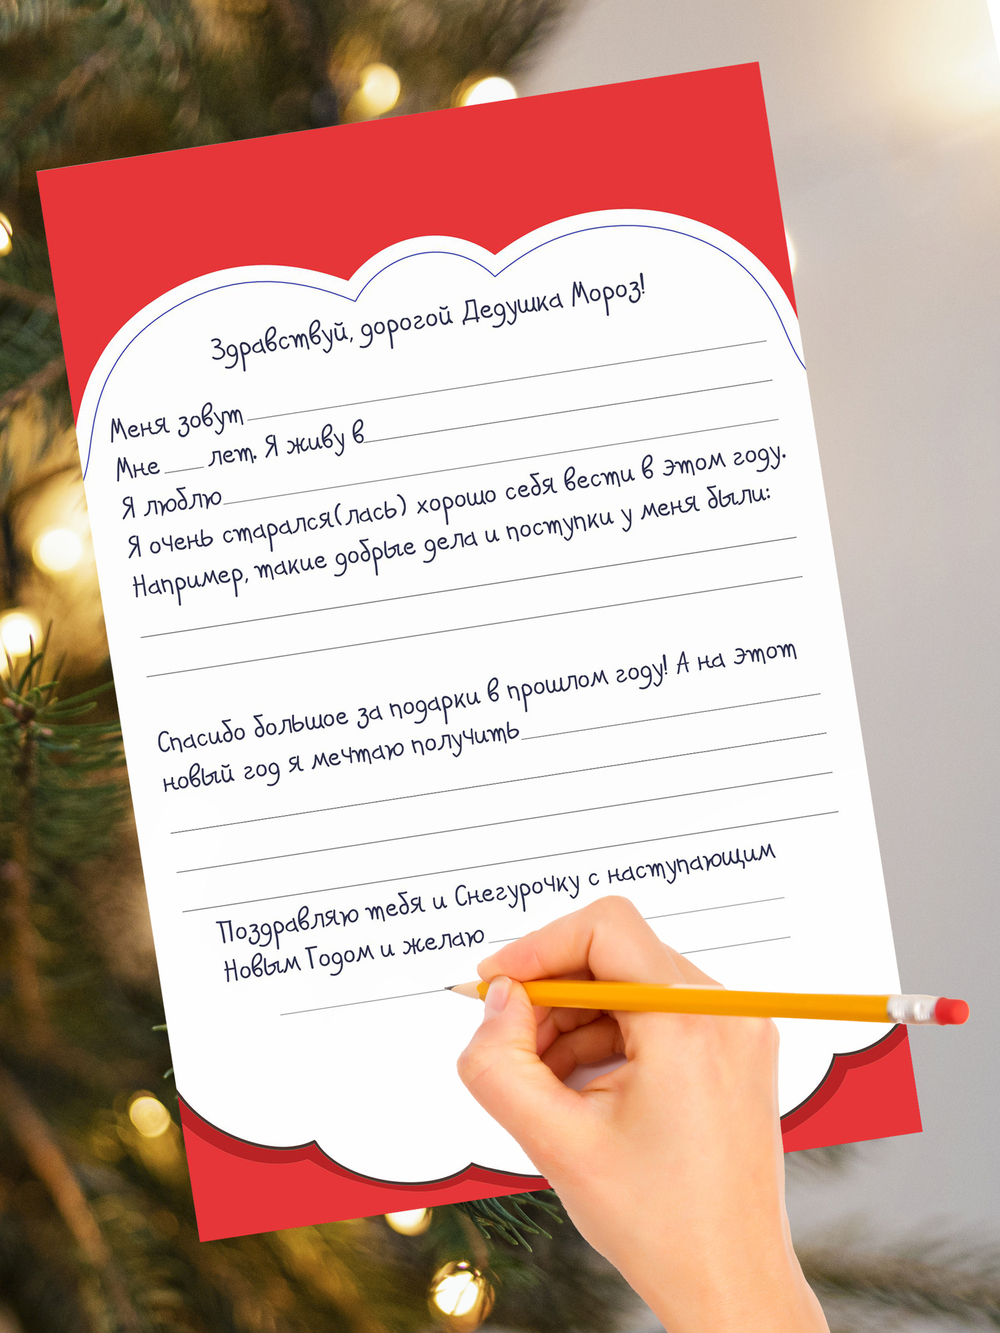 Здравствуй, дорогой Дедушка Мороз!
Меня зовут
Мне ____ лет. Я живу в
Я люблю
Я очень старался(лась) хорошо себя вести в этом году.
Например, такие добрые дела и поступки у меня были:
Спасибо большое за подарки в прошлом году! А на этот
новый год я мечтаю получить
Поздравляю тебя и Снегурочку с наступающим
Новым Годом и желаю